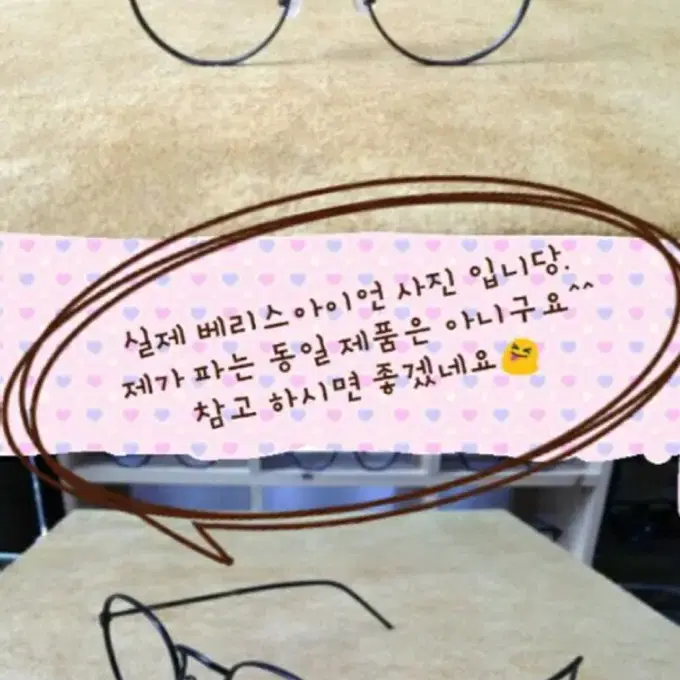 실제 베리스아이언 사진 입니당.
제가 파는 동일 제품은 아니구요^^
참고 하시면 좋겠네요😝